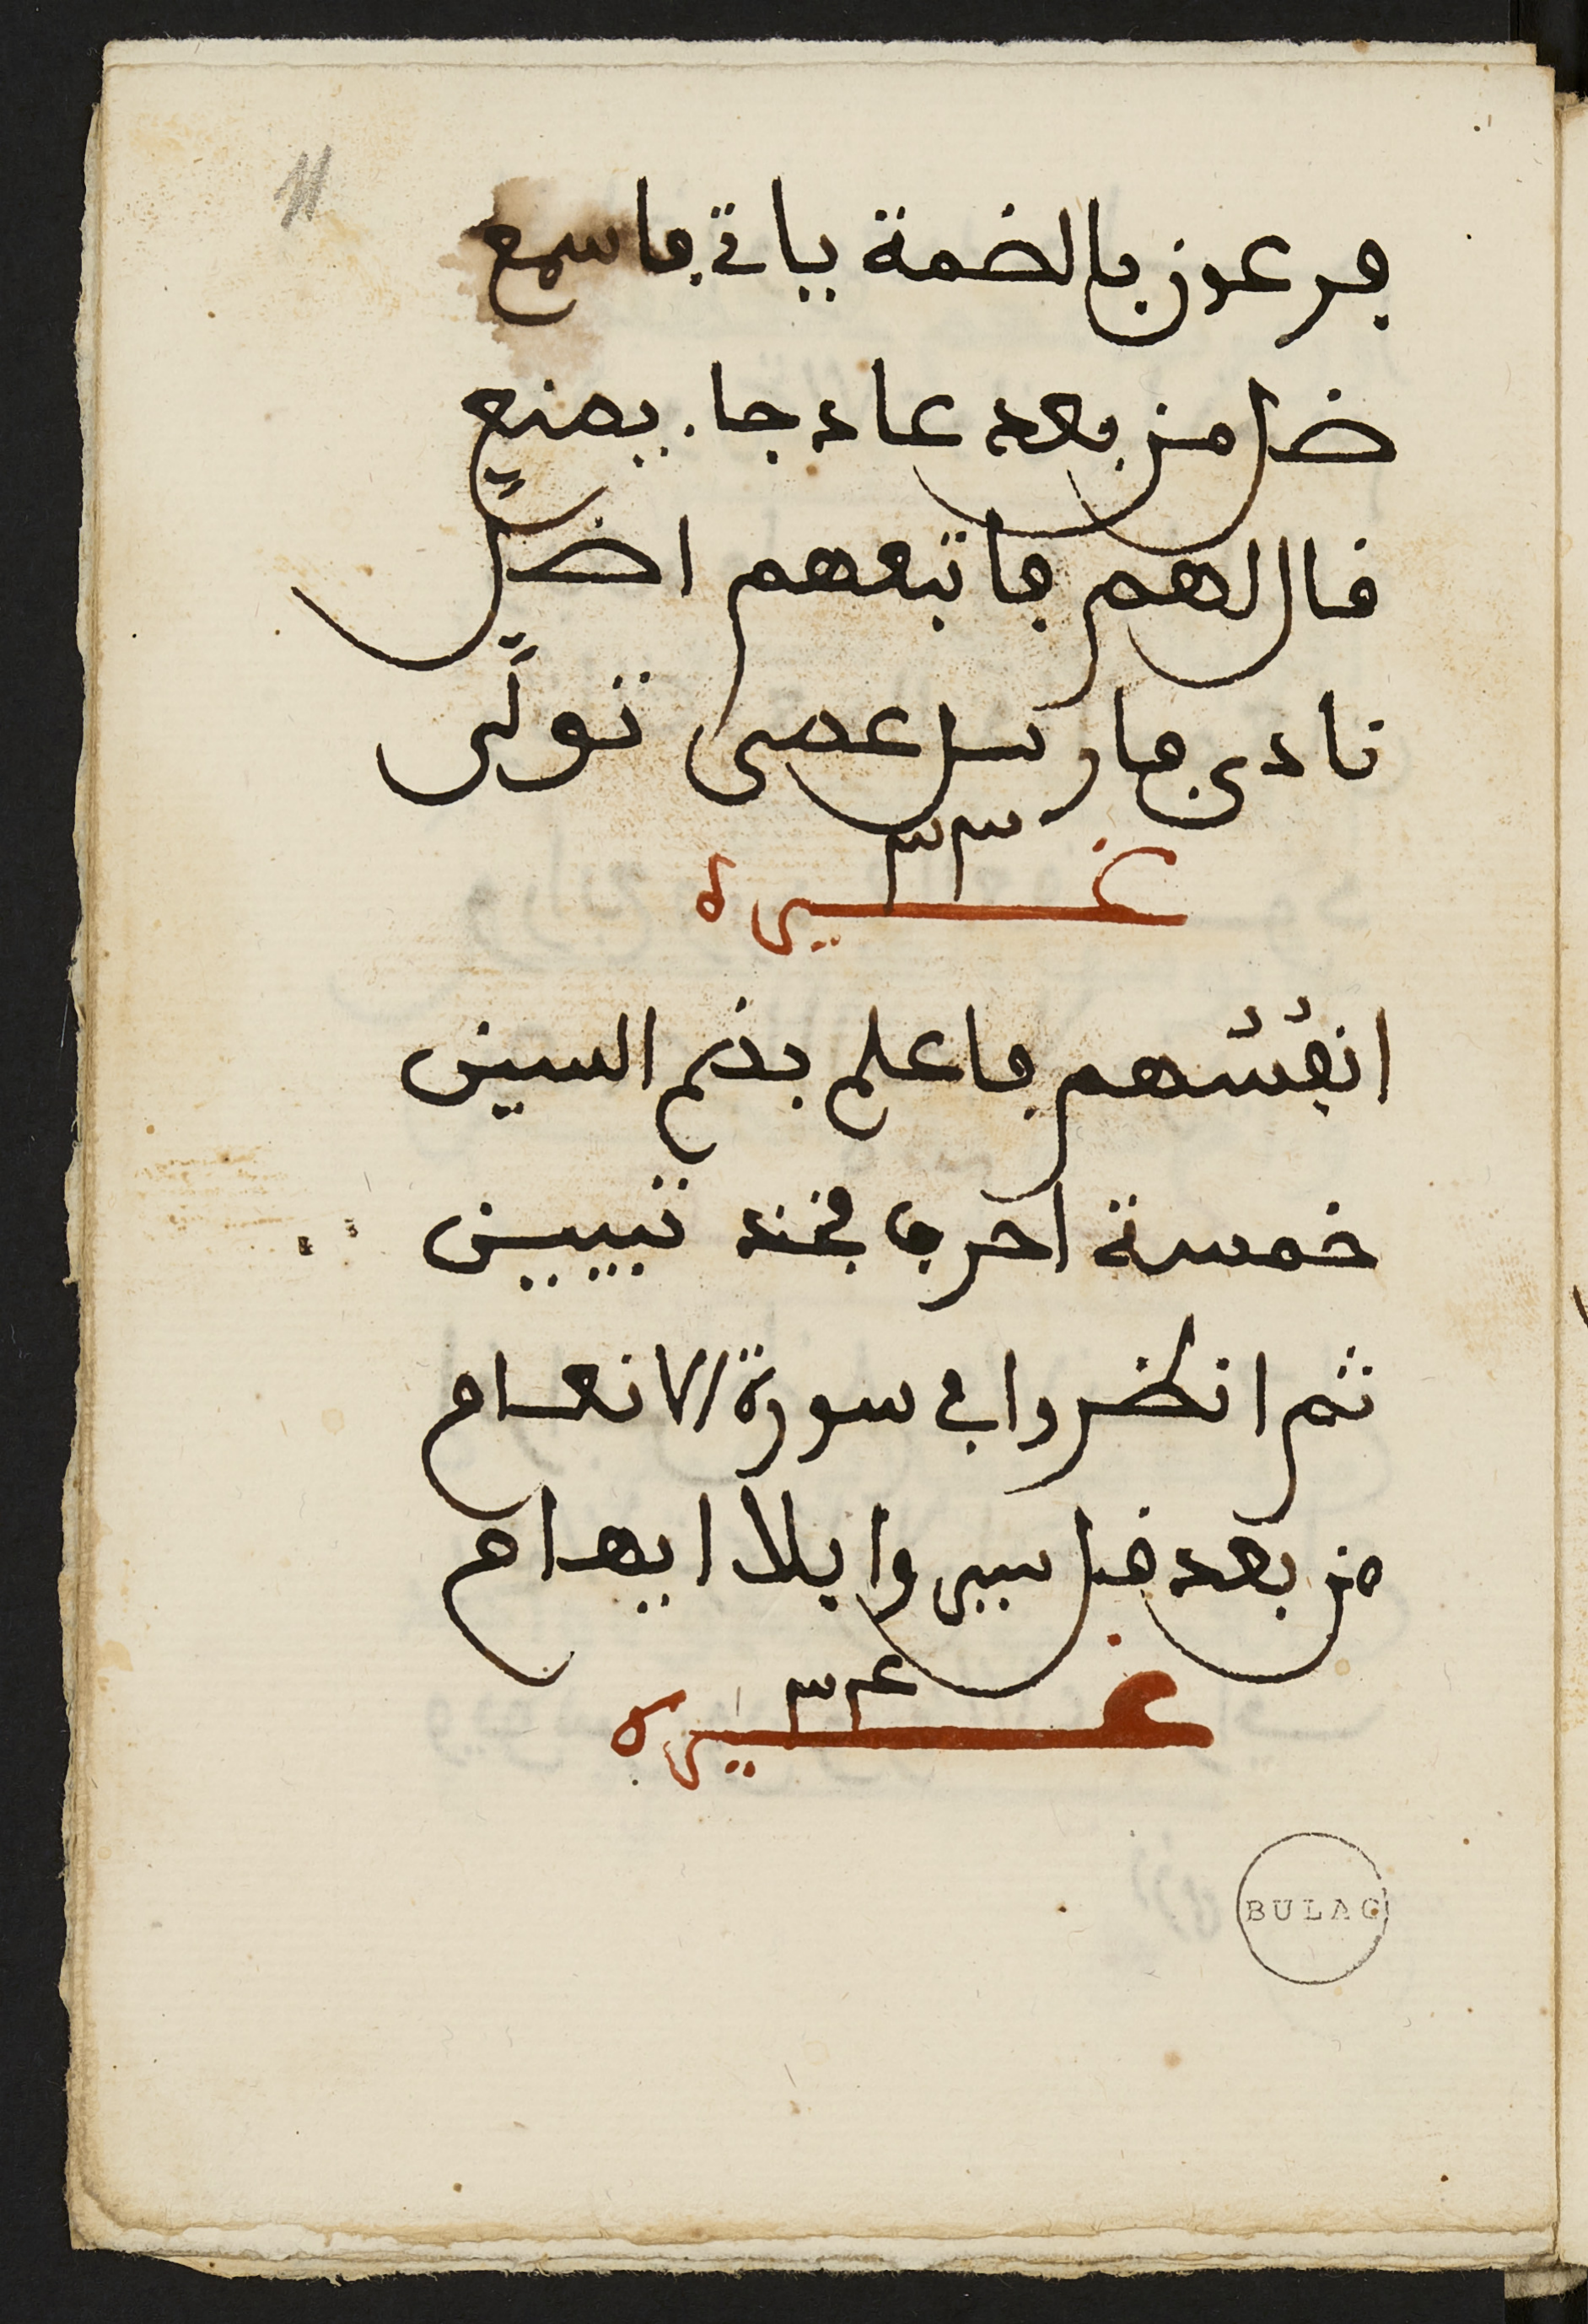 11
فرعون بالضمة ياتي فاسمع
ضل من بعد عاد جا يمنع
قال لهم فاتبعهم اضلّ
نادى فارسل عصى تولّى
غيره
انفُسُهم فاعلم بضم السين
خمسة احرف فخذ تبيين
ثم انظروا في سورة الانعام
من بعد قل سيروا بلا ابهام
غيره
BULAC